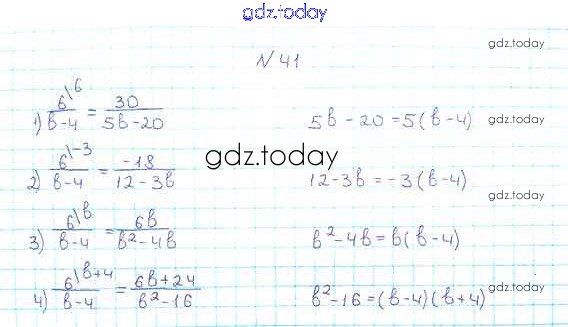 gdz.today
gdz.today
N 41
1) 6\6/(b-4) = 30/(5b-20)  5b - 20 = 5(b-4)  gdz.today
gdz.today
2) 6\-3/(b-4) = -18/(12-3b)  12-3b = -3(b-4)
gdz.today
3) 6\b/(b-4) = 6b/(b²-4b)  b²-4b = b(b-4)
gdz.today
4) 6\b+4/(b-4) = (6b+24)/(b²-16)  b²-16 = (b-4)(b+4)
gdz.today